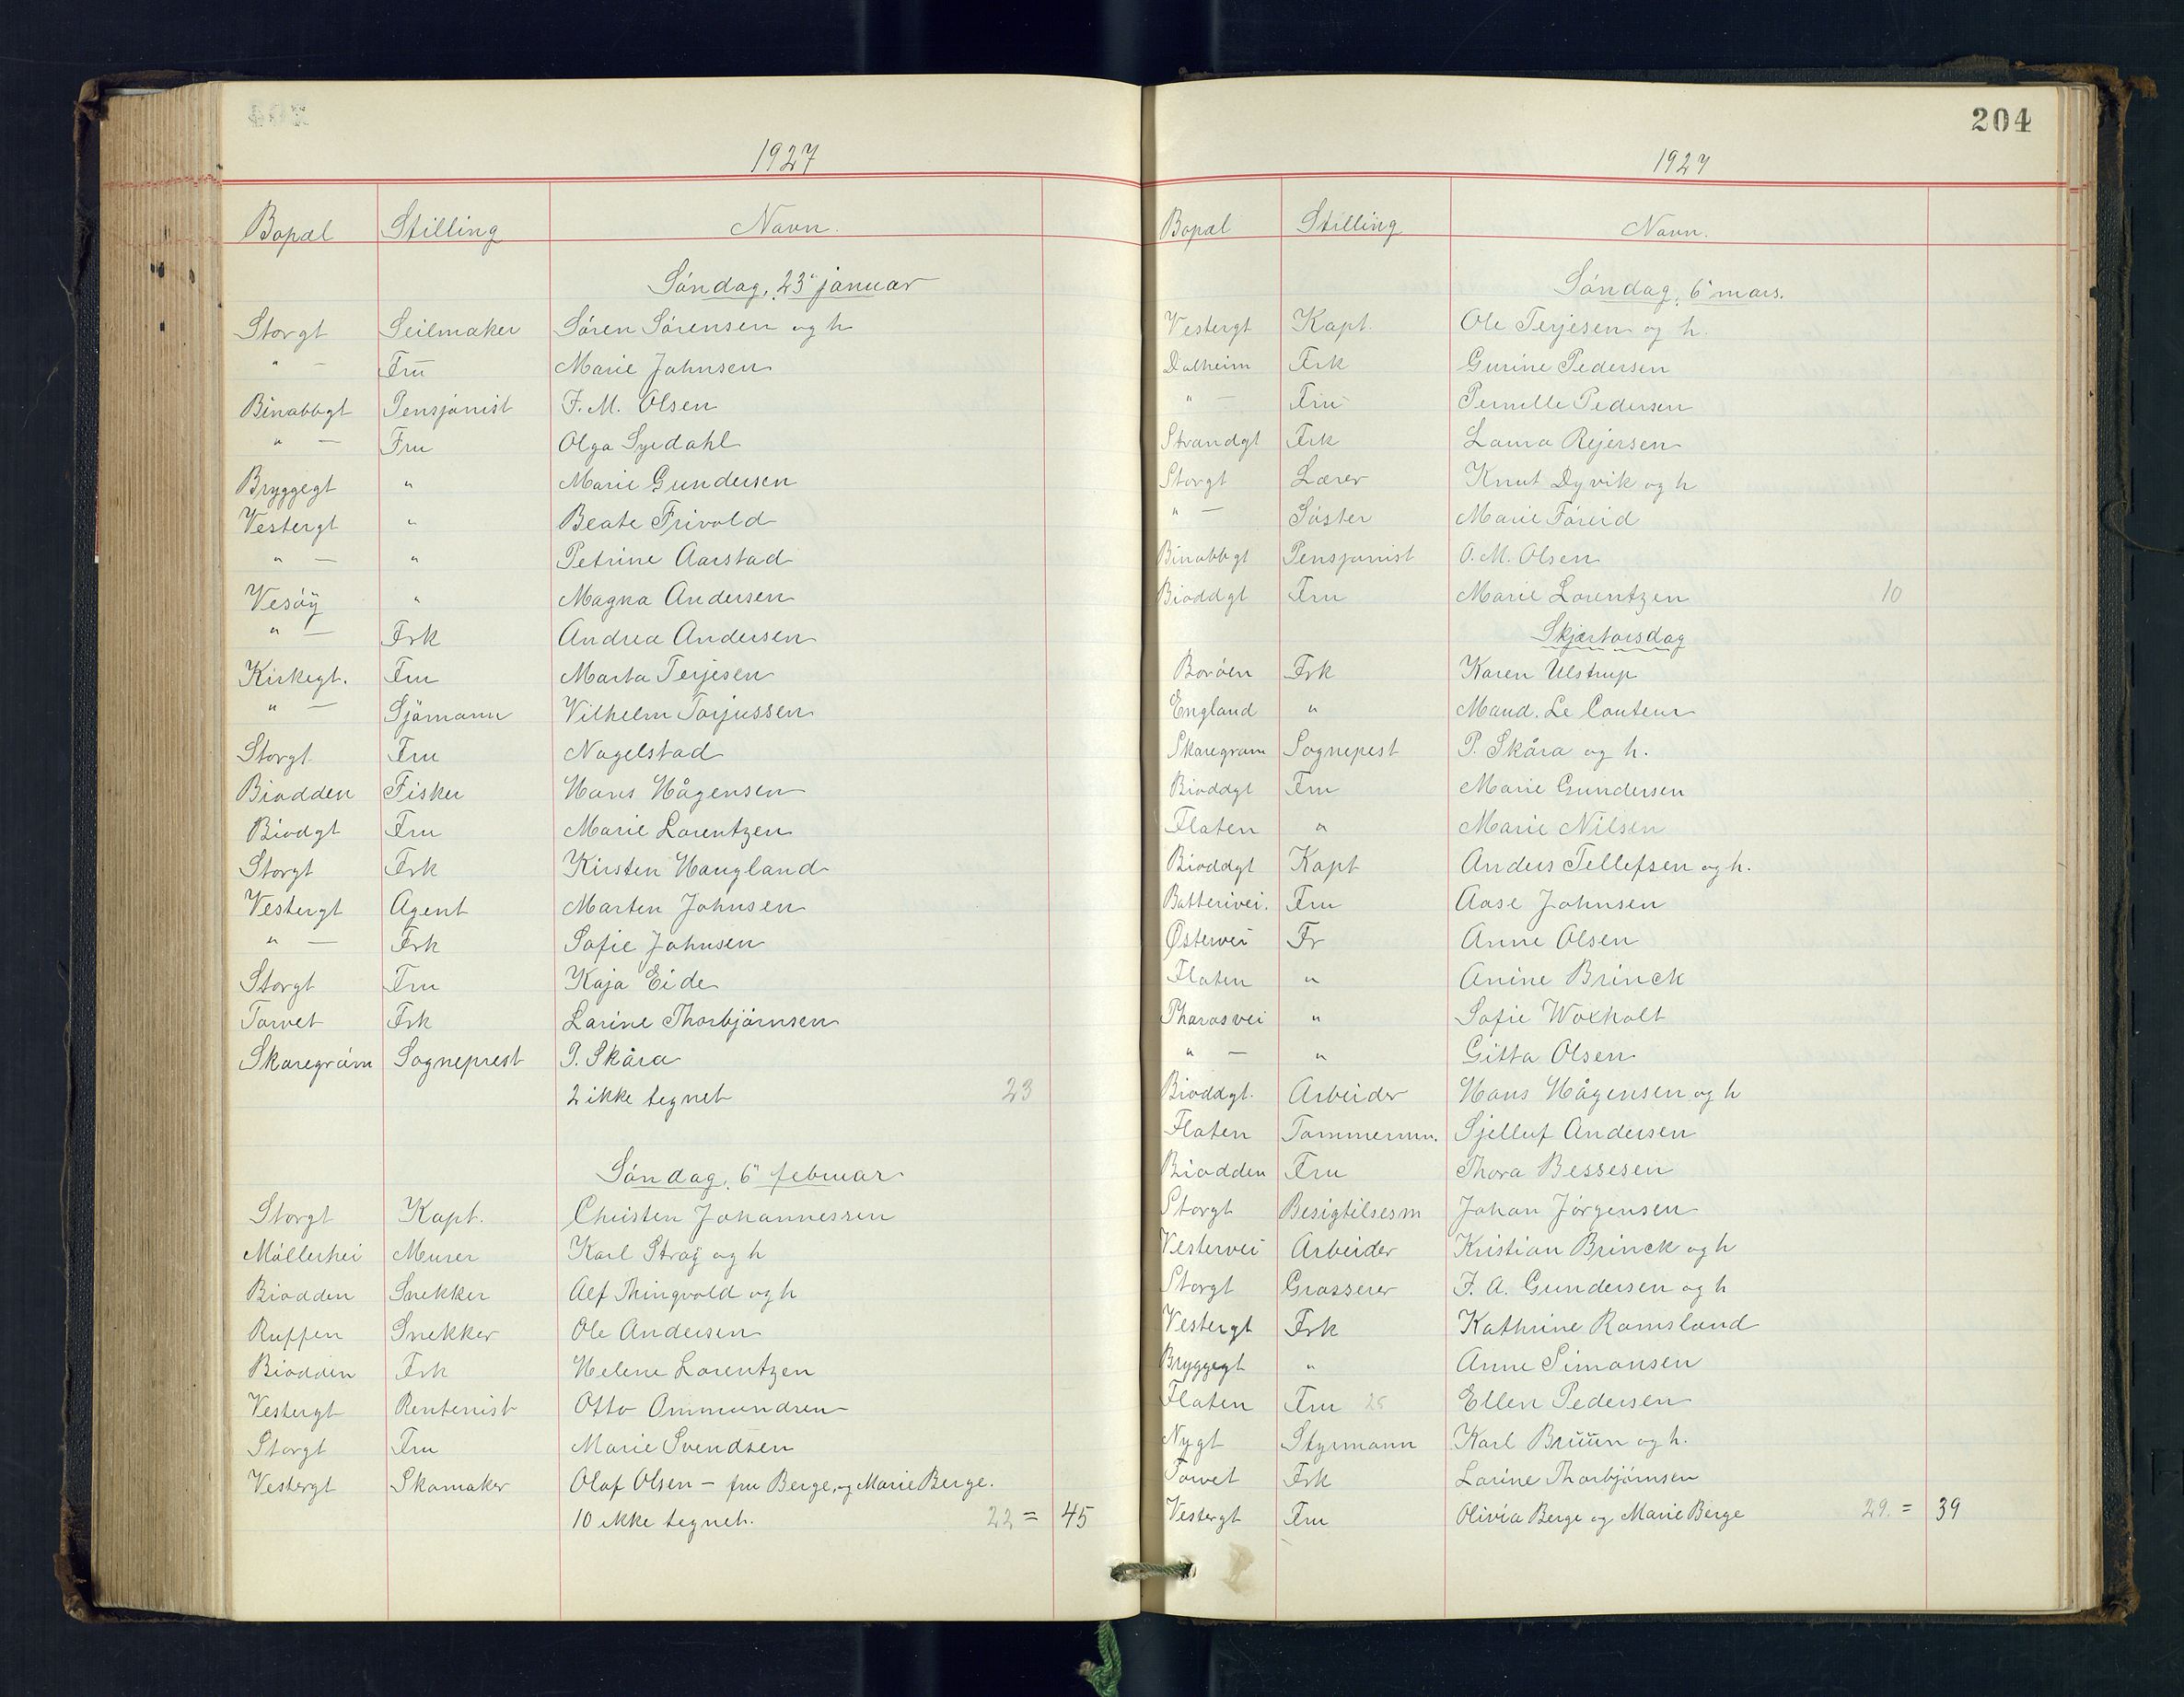 1927
Bopæl Stilling Navn.
Søndag, 23" januar
Storgt Seilmaker Søren Sørensen og h
" — Fru Marie Johnsen
Binabbgt Pensjonist F. M. Olsen
" — Fru Olga Syrdahl
Bryggegt " Marie Gundersen
Vestergt " Beate Frivold
" — " Petrine Aarstad
Vesøÿ " Magna Andersen
" — Frk Andrea Andersen
Kirkegt. Fru Marta Terjesen
" — Sjømann Vilhelm Torjussen
Storgt Fru Nagelstad
Biodden Fisker Hans Hågensen
Biodgt Fru Marie Lorentzen
Storgt Frk Kirsten Haugland
Vestergt Agent Marten Johnsen
" — Frk Sofie Johnsen
Storgt Fru Kaja Eide
Torvet Frk Larine Thorbjørnsen
Skaregrøm Sogneprest P. Skåra
2 ikke tegnet 23
Søndag, 6" februar
Storgt Kapt. Christen Johannessen
Møllerhei Murer Karl Straÿ og h
Biodden Snekker Alf Thingvold og h
Ruffen Snekker Ole Andersen
Biodden Frk Helene Lorentzen
Vestergt Rentenist Otto Ommundsen
Storgt Fru Marie Svendsen
Vestergt Skomaker Olaf Olsen — fru Berge, og Marie Berge.
10 ikke tegnet. 22 = 45
204
1927
Bopæl Stilling Navn.
Søndag, 6" mars.
Vestergt Kapt. Ole Terjesen og h.
Dalheim Frk Gurine Pedersen
" — Fru Pernille Pedersen
Strandgt Frk Laura Rejersen
Storgt Lærer Knut Dyvik og h
" — Søster Marie Føreid
Binabbgt Pensjonist O. M. Olsen
Bioddgt Fru Marie Lorentzen 10
Skjærtorsdag
Borøen Frk Karen Ulstrup
England " Maud. Le Couteur
Skaregrøm Sognepest P. Skåra og h.
Bioddgt Fru Marie Gundersen
Flaten " Marie Nilsen
Bioddgt Kapt Anders Tellefsen og h.
Batterivei. Fru Aase Johnsen
Østervei Fr Anne Olsen
Flaten " Anine Brinck
Pharosvei " Sofie Woxholt
" — " Gitta Olsen
Bioddgt. Arbeider Hans Hågensen og h
Flaten Tømmermn. Sjelluf Andersen
Biodden Fru Thora Bessesen
Storgt Besigtilsesm Johan Jørgensen
Vestervei Arbeider Kristian Brinck og h
Storgt Grosserer F. A. Gundersen og h
Vestergt Frk Kathrine Ramsland
Bryggegt " Anne Simonsen
Flaten Fru 25 Ellen Pedersen
Nygt Styrmann Karl Bruun og h.
Torvet Frk Larine Thorbjørnsen
Vestergt Fru Olivia Berge og Marie Berge 29. = 39